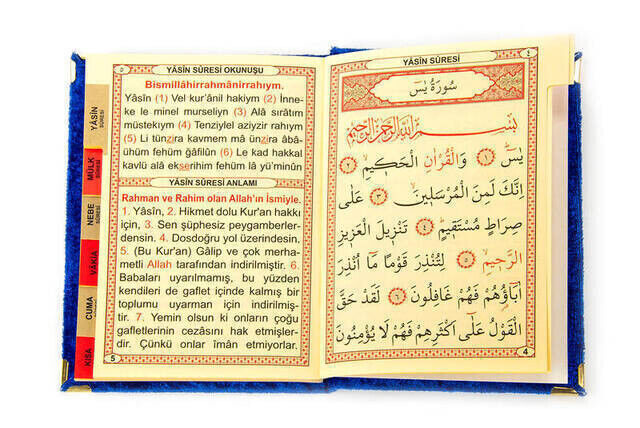 YÂSİN SÛRESİ
٤
سُورَةُ يٰسٓ
بِسْمِ اللّٰهِ الرَّحْمٰنِ الرَّحِيمِ
يٰسٓۜ ﴿١﴾ وَالْقُرْاٰنِ الْحَكِيمِۙ ﴿٢﴾
اِنَّكَ لَمِنَ الْمُرْسَلِينَۙ ﴿٣﴾ عَلٰى
صِرَاطٍ مُسْتَقِيمٍۜ ﴿٤﴾ تَنْزِيلَ الْعَزِيزِ
الرَّحِيمِۙ ﴿٥﴾ لِتُنْذِرَ قَوْمًا مَٓا اُنْذِرَ
اٰبَٓاؤُ۬هُمْ فَهُمْ غَافِلُونَ ﴿٦﴾ لَقَدْ حَقَّ
الْقَوْلُ عَلٰٓى اَكْثَرِهِمْ فَهُمْ لَا يُؤْمِنُونَ
4
٥
YÂSİN SÛRESİ OKUNUŞU
Bismillâhirrahmânirrahıym.
Yâsîn (1) Vel kur'ânil hakiym (2) İnne-
ke le minel murseliyn (3) Alâ sırâtım
müstekıym (4) Tenziylel aziyzir rahıym
(5) Li tünzira kavmem mâ ünzira âbâ-
ühüm fehüm ğâfilûn (6) Le kad hakkal
kavlü alâ ekserihim fehüm lâ yü'minûn
YÂSİN SÛRESİ ANLAMI
Rahman ve Rahim olan Allah'ın ismiyle.
1. Yâsîn, 2. Hikmet dolu Kur'an hakkı
için, 3. Sen şüphesiz peygamberler-
densin. 4. Dosdoğru yol üzerindesin.
5. (Bu Kur'an) Gâlip ve çok merha-
metli Allah tarafından indirilmiştir. 6.
Babaları uyarılmamış, bu yüzden
kendileri de gaflet içinde kalmış bir
toplumu uyarman için indirilmiş-
tir. 7. Yemin olsun ki onların çoğu
gafletlerinin cezasını hak etmişler-
dir. Çünkü onlar îmân etmiyorlar.
5
YÂSİN
SÛRESİ
MÜLK
SÛRESİ
NEBE
SÛRESİ
VÂKIA
CUMA
KISA